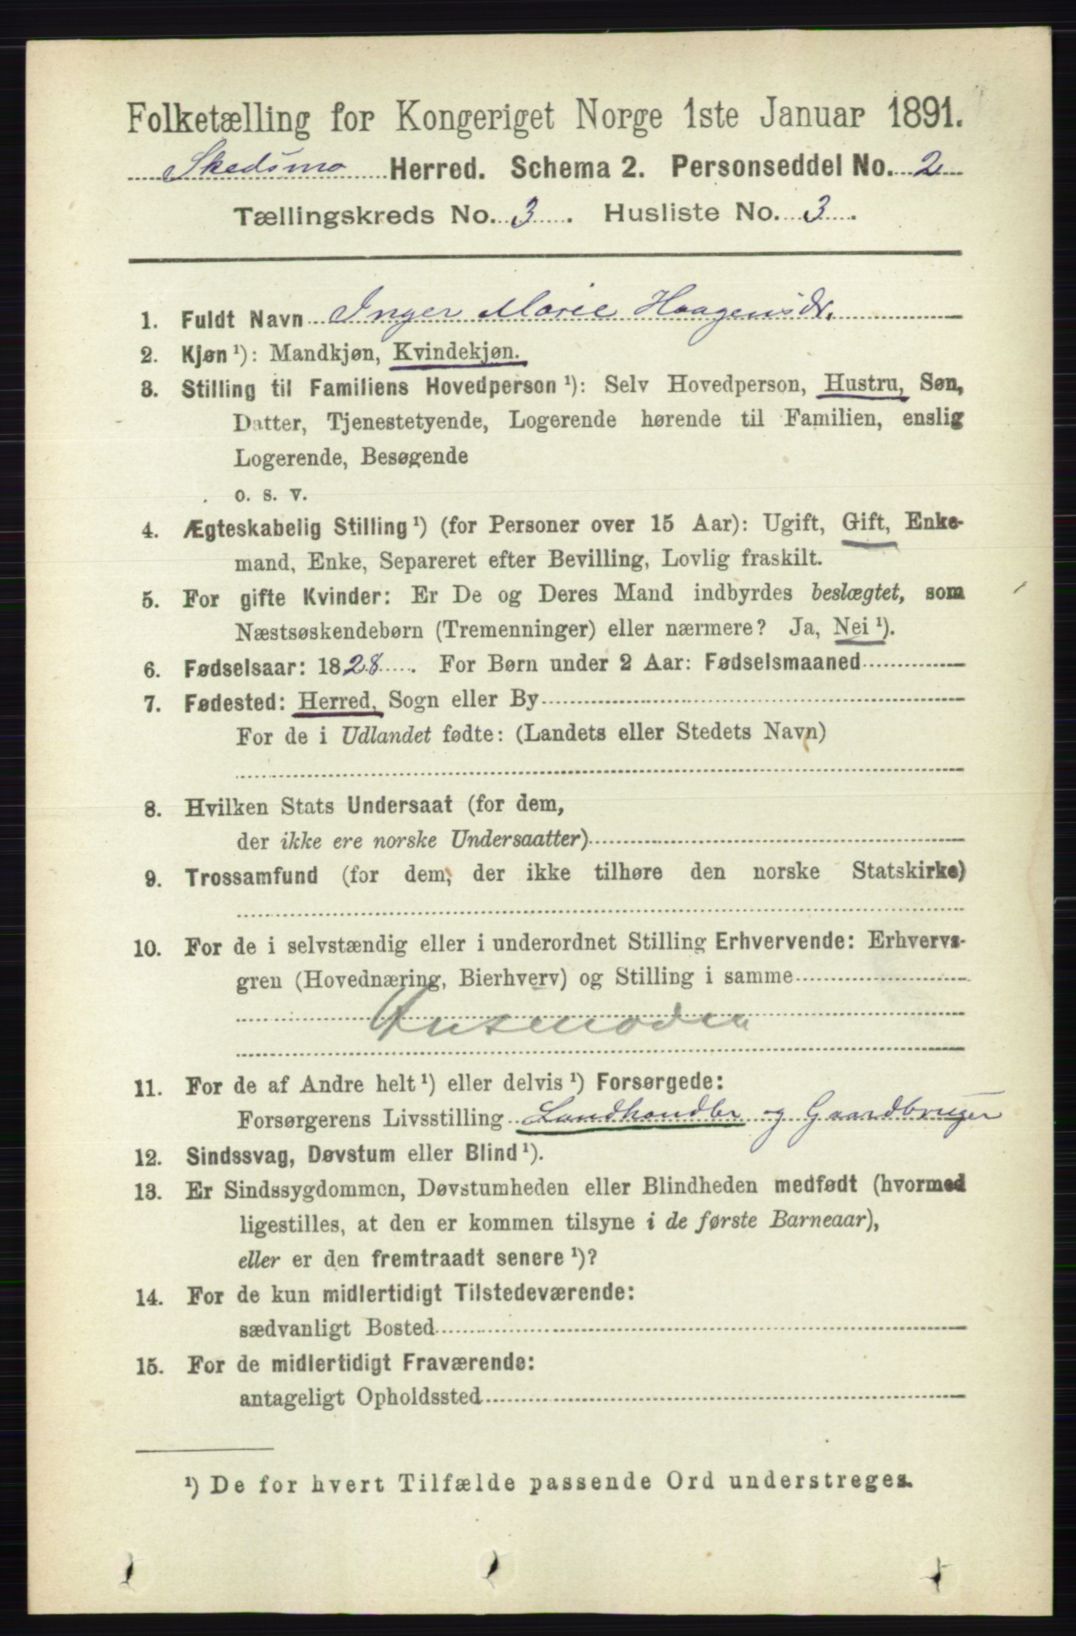 Folketælling for Kongeriget Norge 1ste Januar 1891.
Skedsmo Herred. Schema 2. Personseddel No. 2
Tællingskreds No. 3. Husliste No. 3.
1. Fuldt Navn Inger Marie Haagensdr.
2. Kjøn ¹): Mandkjøn, Kvindekjøn.
3. Stilling til Familiens Hovedperson ¹): Selv Hovedperson, Hustru, Søn,
Datter, Tjenestetyende, Logerende hørende til Familien, enslig
Logerende, Besøgende
o. s. v.
4. Ægteskabelig Stilling ¹) (for Personer over 15 Aar): Ugift, Gift, Enke-
mand, Enke, Separeret efter Bevilling, Lovlig fraskilt.
5. For gifte Kvinder: Er De og Deres Mand indbyrdes beslægtet, som
Næstsøskendebørn (Tremenninger) eller nærmere? Ja, Nei ¹).
6. Fødselsaar: 1828. For Børn under 2 Aar: Fødselsmaaned
7. Fødested: Herred, Sogn eller By
For de i Udlandet fødte: (Landets eller Stedets Navn)
8. Hvilken Stats Undersaat (for dem,
der ikke ere norske Undersaatter)
9. Trossamfund (for dem, der ikke tilhøre den norske Statskirke)
10. For de i selvstændig eller i underordnet Stilling Erhvervende: Erhvervs-
gren (Hovednæring, Bierhverv) og Stilling i samme
Husmoder
11. For de af Andre helt ¹) eller delvis ¹) Forsørgede:
Forsørgerens Livsstilling Landhandler og Gaardbruger
12. Sindssvag, Døvstum eller Blind ¹).
13. Er Sindssygdommen, Døvstumheden eller Blindheden medfødt (hvormed
ligestilles, at den er kommen tilsyne i de første Barneaar),
eller er den fremtraadt senere ¹)?
14. For de kun midlertidigt Tilstedeværende:
sædvanligt Bosted
15. For de midlertidigt Fraværende:
antageligt Opholdssted
¹) De for hvert Tilfælde passende Ord understreges.